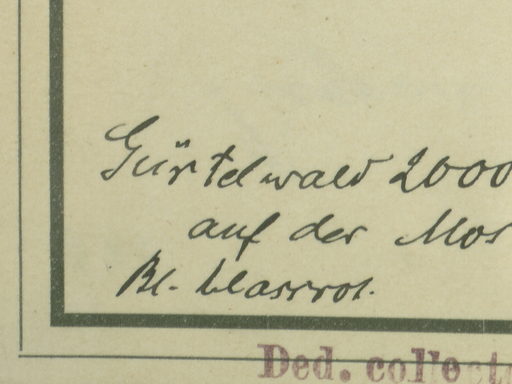 Gürtelwald 2000
auf der Mos
Bl. blassrot.
Ded. collect